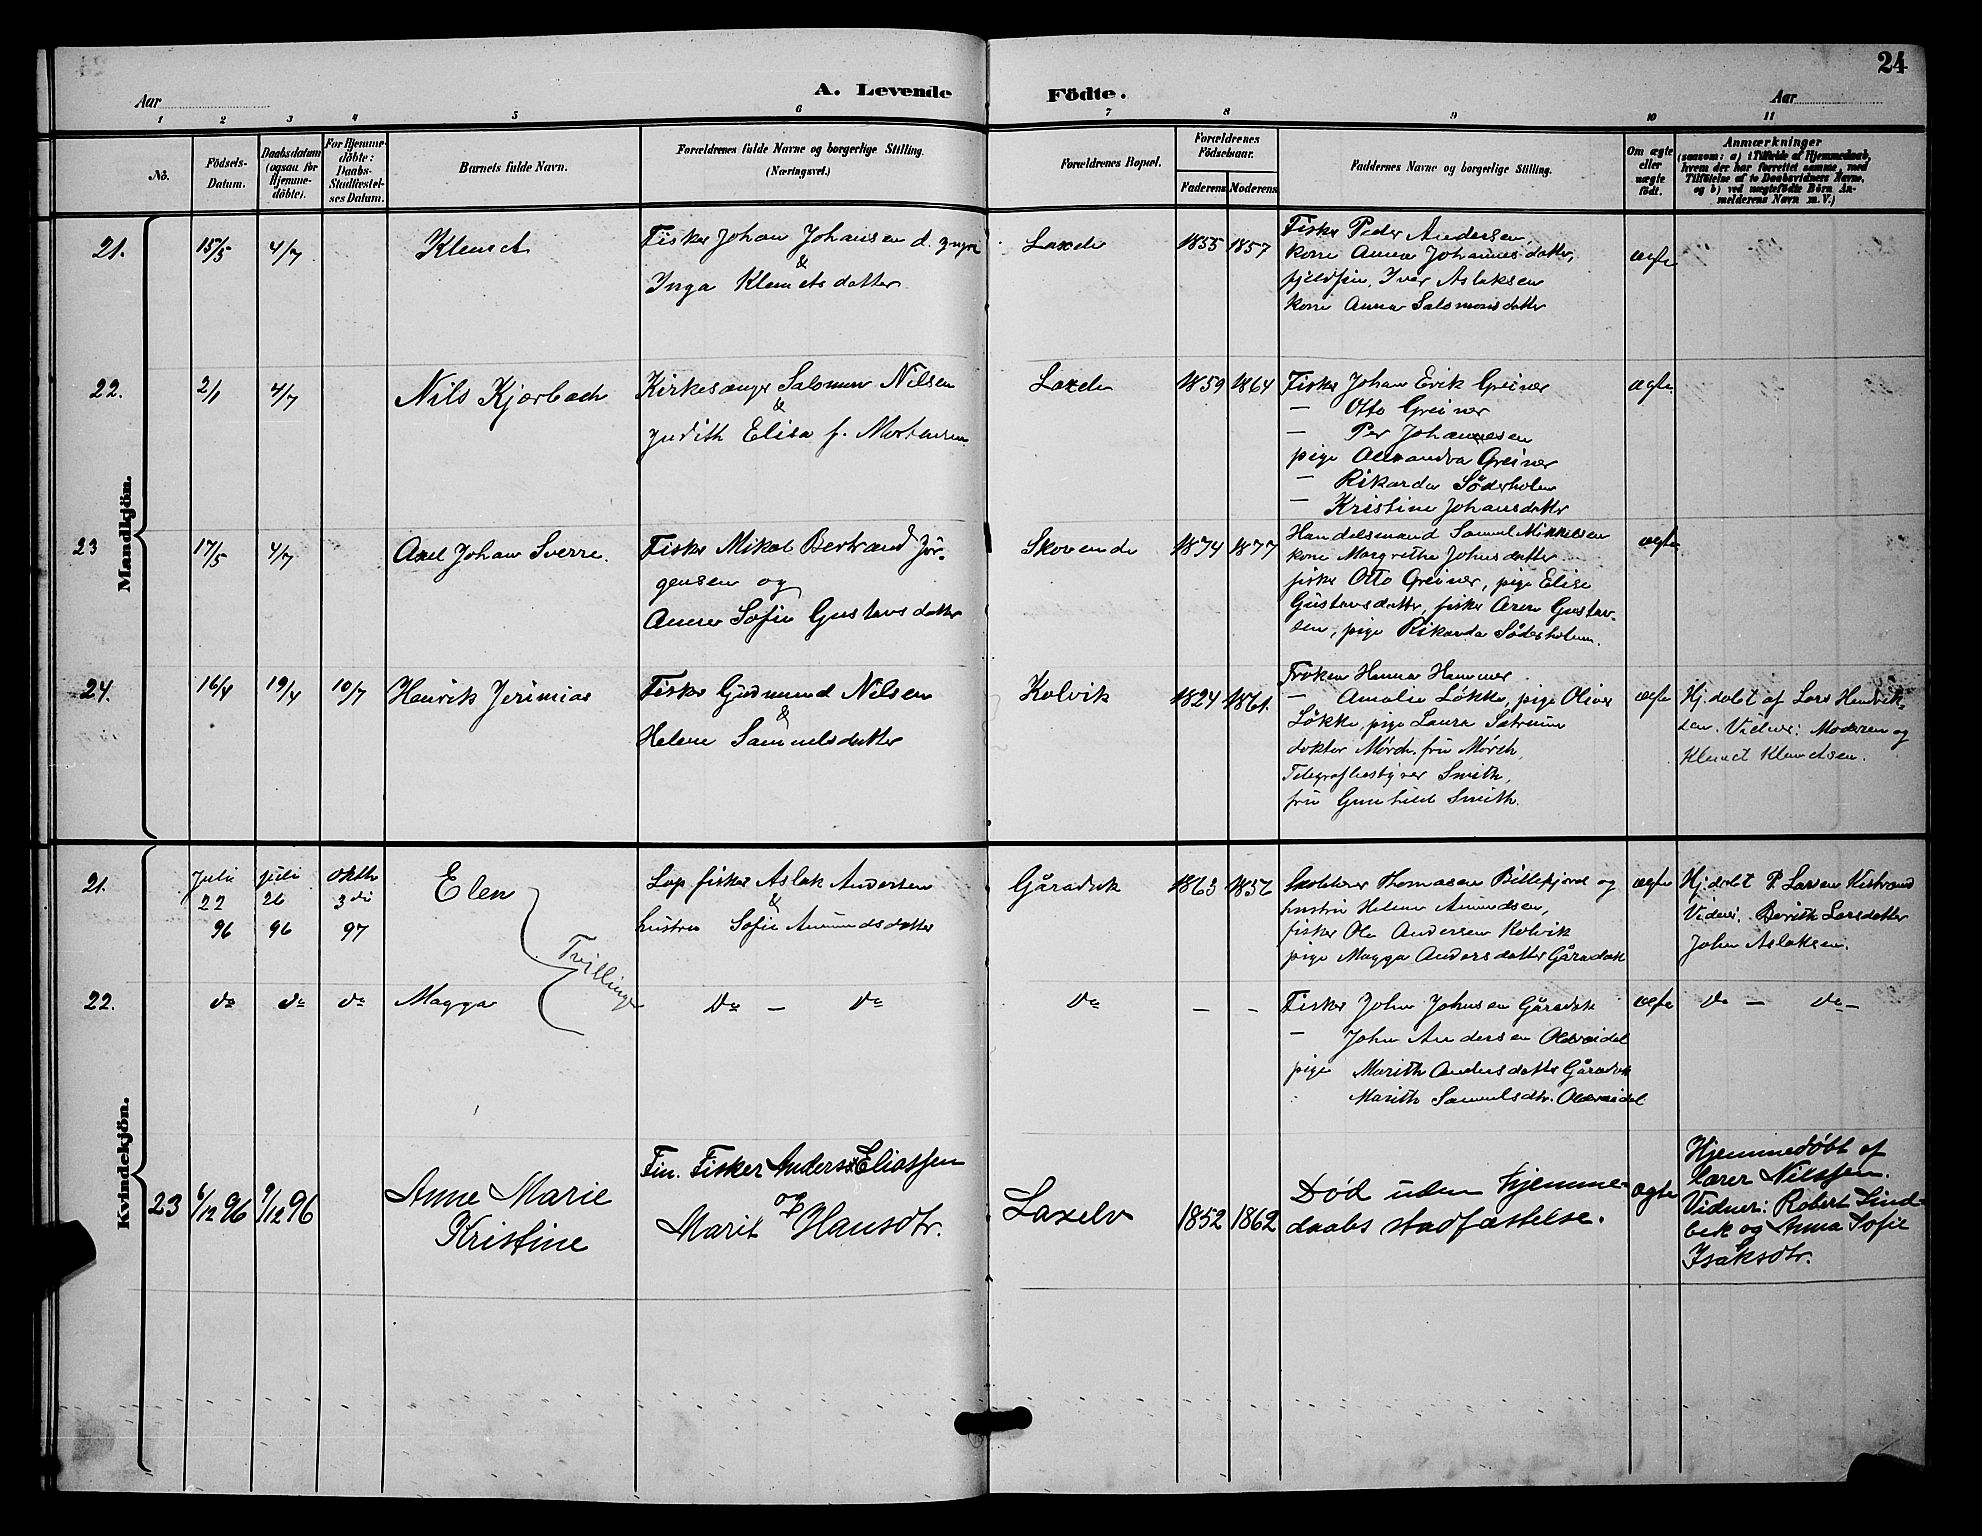 24
Aar
A. Levende Födte.
Aar
1 2 3 4 5 6 7 8 9 10 11
No.
Födsels-Datum.
Daabsdatum (ogsaa for Hjemme-döbte).
For Hjemme-döbte: Daabs-Stadfæstelses Datum.
Barnets fulde Navn.
Forældrenes fulde Navne og borgerlige Stilling.
(Næringsvei.)
Forældrenes Bopæl.
Forældrenes Födselsaar.
Faderens Moderens
Faddernes Navne og borgerlige Stilling.
Om ægte eller uægte födt.
Anmærkninger
(saasom: a) i Tilfælde af Hjemmedaab,
hvem der har forrettet samme, med
Tilföielse af to Daabsvidners Navne,
og b) ved uægtefödte Börn An-
melderens Navn m. V.)
Mandkjön.
21. 15/5 4/7 Klemet
Fisker Johan Johansen d. yngre
&
Inga Klemetsdatter
Laxelv 1855 1857
Fisker Peder Andersen,
kone Anna Johannesdatter,
fjeldfin Iver Aslaksen
kone Anna Salomonsdatter
ægte
22. 2/6 4/7 Nils Kjærbech
Kirkesanger Salomon Nilsen
&
Judith Elisa f. Mortensen
Laxelv 1859 1864
Fisker Johan Erik Greiner
— Otto Greiner
— Per Johannesen
pige Alexandra Greiner
— Rikarda Söderholm
— Kristine Johansdatter
ægte
23 17/5 4/7 Axel Johan Sverre.
Fisker Mikal Bertrand Jör-
gensen og
Anna Sofie Gustavsdatter
Skoven 1874 1877
Handelsmand Samuel Mikkelsen
kone Margrethe Johnsdatter
fisker Otto Greiner, pige Elise
Gustavsdatter, fisker Aron Gustav-
sen, pige Rikarda Söderholm.
ægte
24. 16/4 19/4 10/7 Henrik Jerimias
Fisker Gudmund Nilsen
&
Helene Samuelsdatter
Kolvik 1824 1861.
Frøken Hanna Hammer
— Amalie Løkke, pige Oliver
Løkke, pige Laura
doktor Mörch, fru Mörch,
Telegrafbestyrer Smith,
fru Gunhild Smith.
ægte
Hj.døbt af Lars Henrik-
sen. Vidner: Moderen og
Klemet Klemetsen.
Kvindekjön.
21. Juli 22 96 juli 26 96 oktbr 3die 97 Elen
Tvillinger
Lap fisker Aslak Andersen
&
hustru Sofie Amundsdatter
Gåradak 1863 1856
Skolelærer Thomasen Billefjord og
hustru Helene Amundsen,
fisker Ole Andersen Kolvik
pige Magga Andersdatter Gåradak
ægte
Hj.døbt P. Larsen Kistrand
Vidner. Berith Larsdatter
John Aslaksen.
22. do do do Magga
do — do
do — —
Fisker John Johnsen Gåradak
— John Andersen
pige Marith Andersdatter Gåradak
Marith Samuelsdtr.
ægte
do — do —
23 6/12 96 9/12 96 Anne Marie
Kristine
Fin. Fisker Anders Eliassen
og
Marit Hansdtr.
Laxelv 1852 1862
Død uden hjemme-
daabs stadfæstelse.
ægte
Hjemmedøbt af
lærer Nilssen.
Vidner: Robert Lind-
bek og Anna Sofie
Isaksdtr.